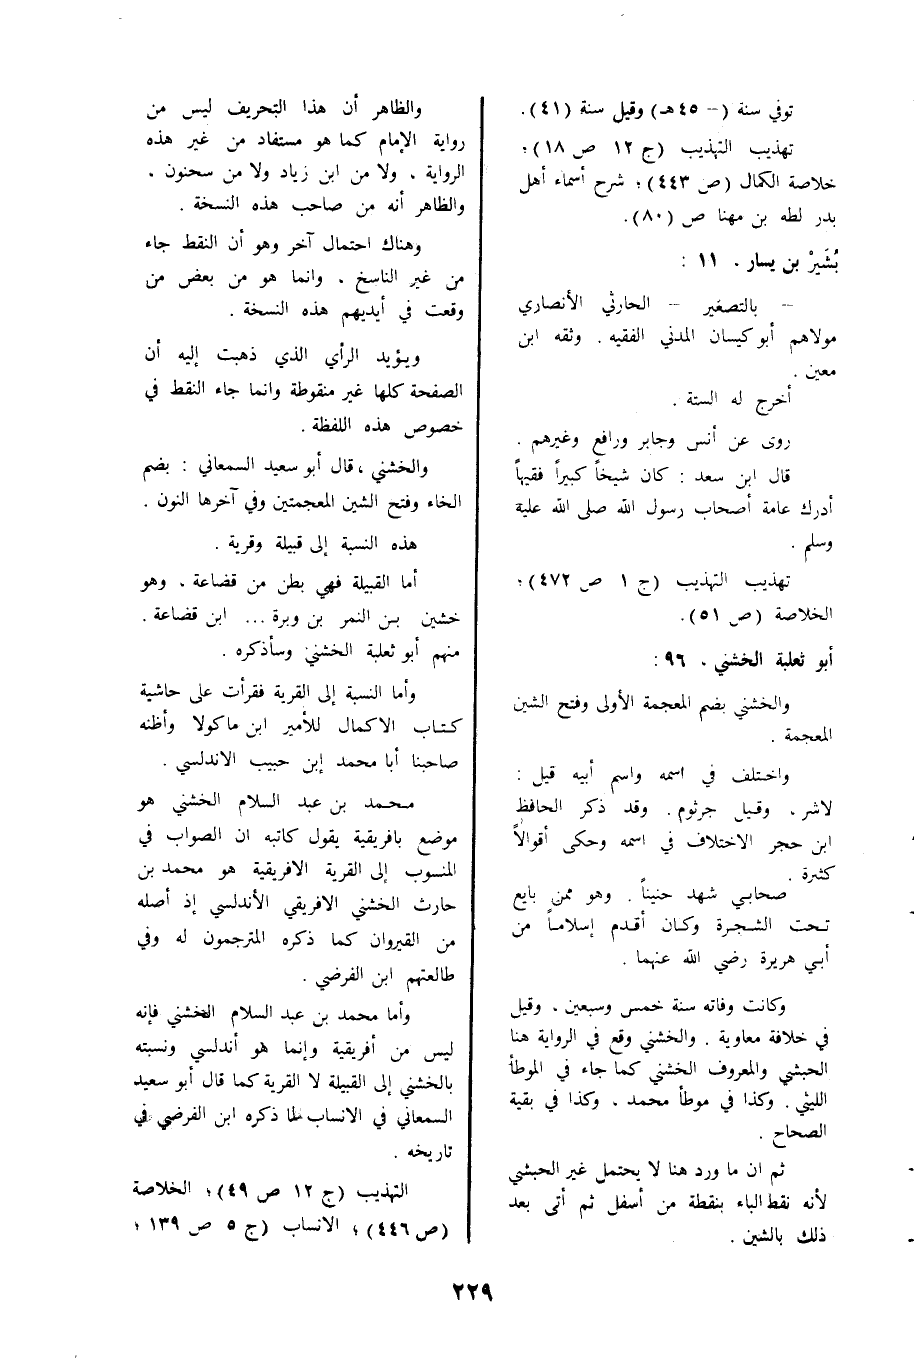 توفي سنة (– ٤٥هـ) وقيل سنة (٤١).
تهذيب التهذيب (ج ١٢ ص ١٨)؛
خلاصة الكمال (ص ٤٤٣)؛ شرح أسماء أهل
بدر لطه بن مهنا ص (٨٠).
بُشَيرْ بن يسار . ١١ :
– بالتصغير – الحارثي الأنصاري
مولاهم أبو كيسان المدني الفقيه . وثقه ابن
معين .
أخرج له الستة .
روى عن أنس وجابر ورافع وغيرهم .
قال ابن سعد : كان شيخاً كبيراً فقيهاً
أدرك عامة أصحاب رسول الله صلى الله علية
وسلم .
تهذيب التهذيب (ج ١ ص ٤٧٢)؛
الخلاصة (ص ٥١).
أبو ثعلبة الخشني . ٩٦ :
والخشني بضم المعجمة الأولى وفتح الشين
المعجمة .
واختلف في اسمه واسم أبيه قيل :
لاشر . وقيل جرثوم . وقد ذكر الحافظ
ابن حجر الاختلاف في اسمه وحكى أقوالاً
كثرة .
صحابي شهد حنيناً . وهو ممن بايع
تحت الشجرة وكان أقدم إسلاماً من
أبي هريرة رضي الله عنهما .
وكانت وفاته سنة خمس وسبعين . وقيل
في خلافة معاوية . والخشني وقع في الرواية هنا
الحبشي والمعروف الخشني كما جاء في الموطأ
الليثي . وكذا في موطأ محمد . وكذا في بقية
الصحاح .
ثم ان ما ورد هنا لا يحتمل غير الحبشي
لأنه نقط الباء بنقطة من أسفل ثم أتى بعد
ذلك بالشين .
والظاهر أن هذا التحريف ليس من
رواية الإمام كما هو مستفاد من غير هذه
الرواية . ولا من ابن زياد ولا من سحنون .
والظاهر أنه من صاحب هذه النسخة .
وهناك احتمال آخر وهو أن النقط جاء
من غير الناسخ . وانما هو من بعض من
وقعت في أيديهم هذه النسخة .
ويؤيد الرأي الذي ذهبت إليه أن
الصفحة كلها غير منقوطة وانما جاء النقط في
خصوص هذه اللفظة .
والخشني ، قال أبو سعيد السمعاني : بضم
الخاء وفتح الشين المعجمتين وفي آخرها النون .
هذه النسبة إلى قبيلة وقرية .
أما القبيلة فهي بطن من قضاعة . وهو
خشين بن النمر بن وبرة ... ابن قضاعة .
منهم أبو ثعلبة الخشني وسأذكره .
وأما النسبة إلى القرية فقرأت على حاشية
كتاب الاكمال للأمير ابن ماكولا وأظنه
صاحبنا أبا محمد إبن حبيب الاندلسي .
محمد بن عبد السلام الخشني هو
موضع بافريقية يقول كاتبه ان الصواب في
المنسوب إلى القرية الافريقية هو محمد بن
حارث الخشني الافريقي الأندلسي إذ أصله
من القيروان كما ذكره المترجمون له وفي
طالعتهم ابن الفرضي .
وأما محمد بن عبد السلام الخشني فإنه
ليس من أفريقية وإنما هو أندلسي ونسبته
بالخشني إلى القبيلة لا القرية كما قال أبو سعيد
السمعاني في الانساب لما ذكره ابن الفرضي في
تاريخه .
التهذيب (ج ١٢ ص ٤٩)؛ الخلاصة
(ص ٤٤٦)؛ الانساب (ج ٥ ص ١٣٩؛
٢٢٩